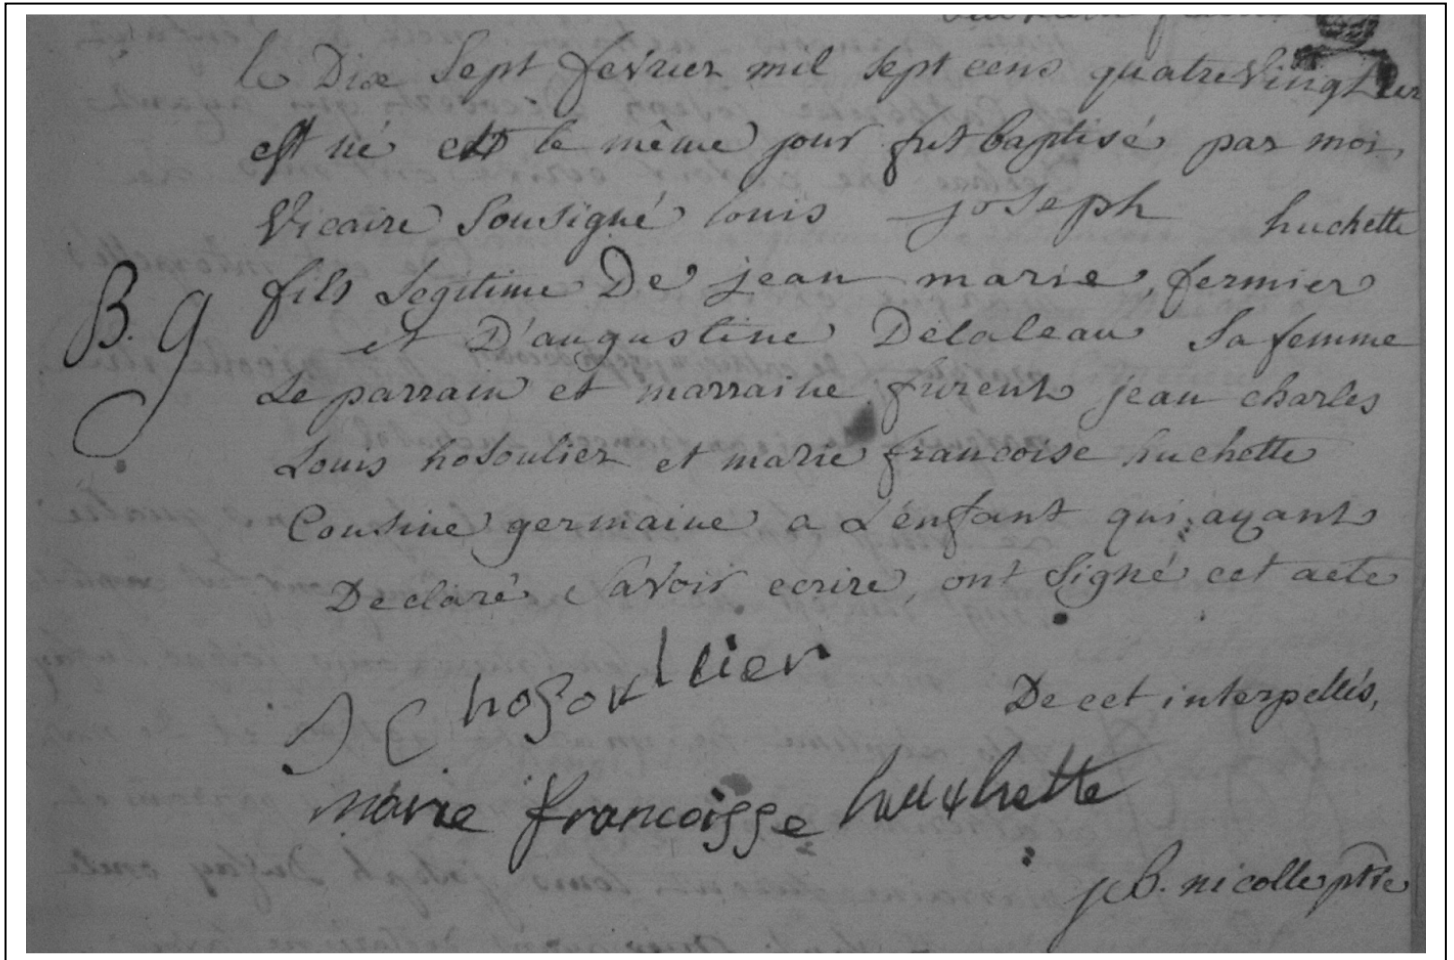 le Dix Sept février mil sept cens quatre vingt
est né et le même jour fut baptisé par moi
vicaire Sousigné louis joseph huchette
fils Legitime De jean marie, fermier
B. g
et D'augustine Delaleau Sa femme
Le parrain et marraine furent jean charles
Louis hosoulier et marie francoise huchette
Cousine germaine a L'enfant qui ayant
Declaré Savoir ecrire, ont signé cet acte
De cet interpellés,
J C hosoullier
marie francoisse huchette
j.B. nicolle ptre